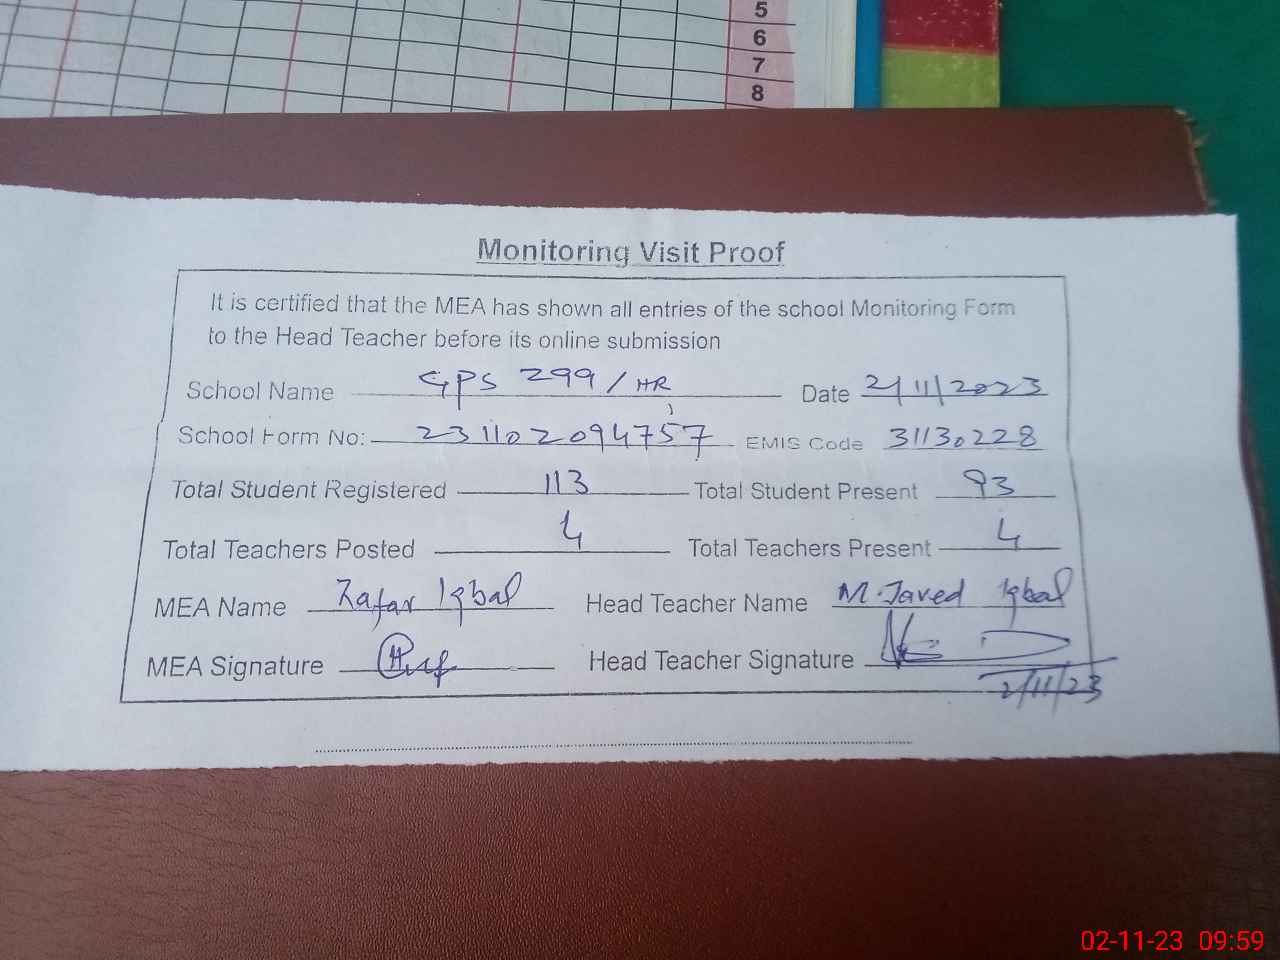 5
6
7
8
Monitoring Visit Proof
It is certified that the MEA has shown all entries of the school Monitoring Form
to the Head Teacher before its online submission
School Name GPS 299/HR Date 2/11/2023
School Form No: 231102094757 EMIS Code 31130228
Total Student Registered 113 Total Student Present 93
Total Teachers Posted 4 Total Teachers Present 4
MEA Name Zafar Iqbal Head Teacher Name M.Javed Iqbal
MEA Signature Head Teacher Signature
2/11/23
02-11-23 09:59